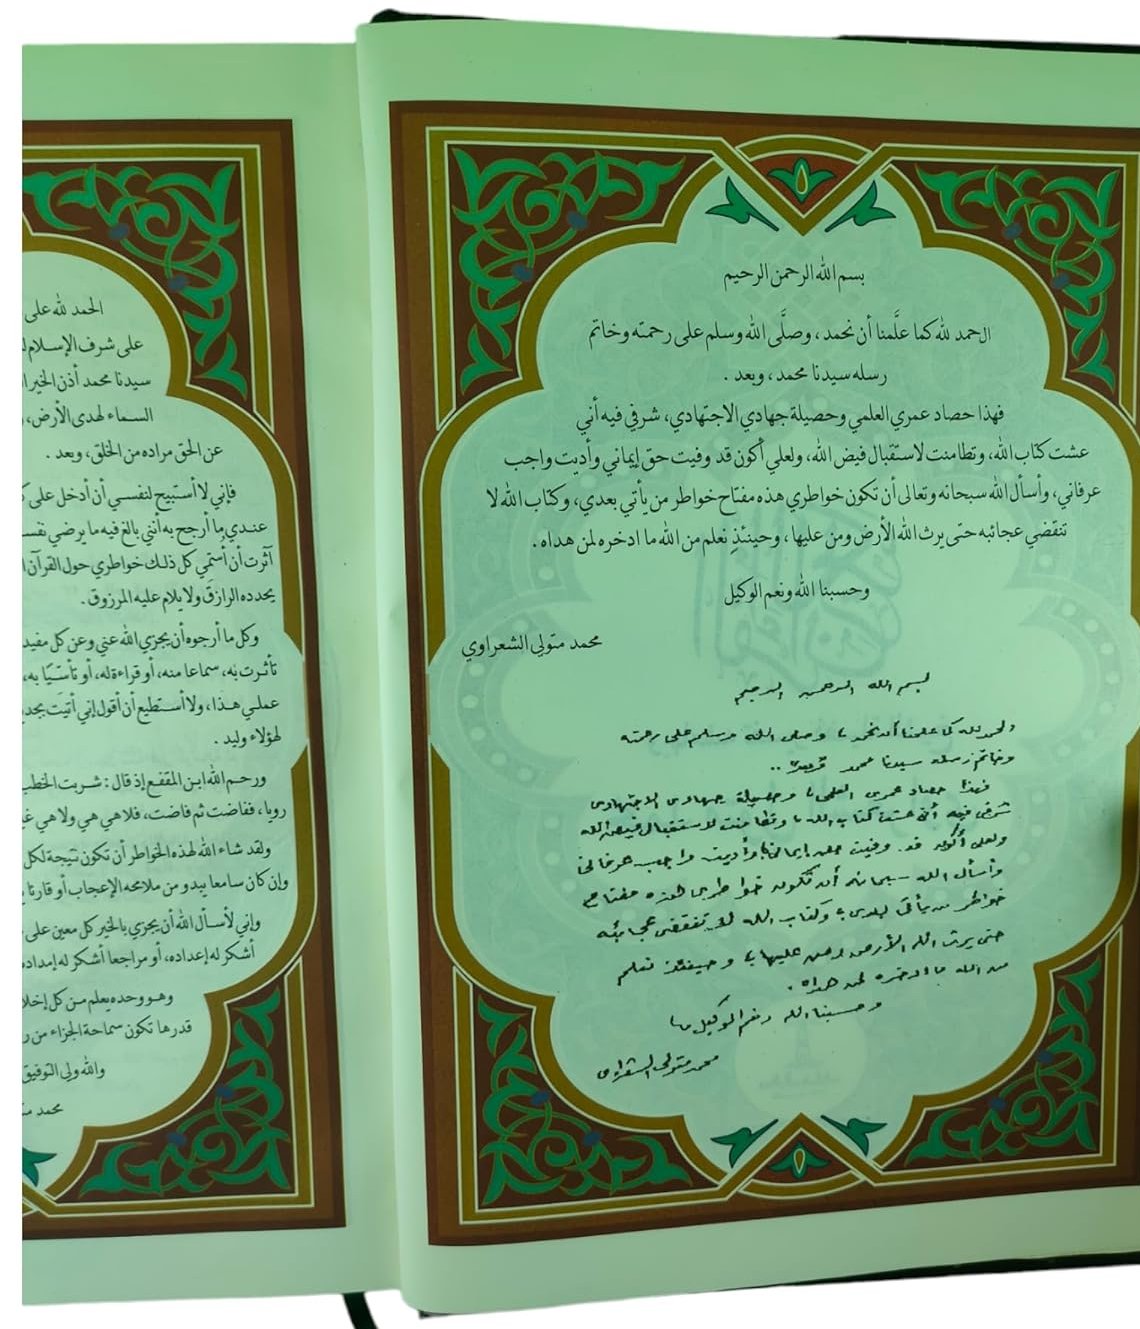 بسم الله الرحمن الرحيم
الحمد لله كما علَّمنا أن نحمد، وصلَّى الله وسلم على رحمته وخاتم
رسله سيدنا محمد، وبعد.
فهذا حصاد عمري العلمي وحصيلة جهادي الاجتهادي، شرفي فيه أني
عشت كتاب الله، وتطامنت لاستقبال فيض الله، ولعلي أكون قد وفيت حق إيماني وأديت واجب
عرفاني، وأسأل الله سبحانه وتعالى أن تكون خواطري هذه مفتاح خواطر من يأتي بعدي، وكتاب الله لا
تنقضي عجائبه حتى يرث الله الأرض ومن عليها، وحينئذٍ نعلم من الله ما ادخره لمن هداه.
وحسبنا الله ونعم الوكيل
محمد متولي الشعراوي
بسم الله الرحمن الرحيم
والحمد لله كما علمنا أن نحمد، وصلى الله وسلم على رحمته
وخاتم رسله سيدنا محمد وبعد..
فهذا حصاد عمرى العلمى، وحصيلة جهادى الاجتهادى
شرفى فيه أنى عشت كتاب الله، وتطامنت لاستقبال فيض الله
ولعلى أكون قد وفيت حق إيمانى، وأديت واجب عرفانى
وأسأل الله سبحانه أن تكون خواطرى هذه مفتاح
خواطر من يأتى بعدى، وكتاب الله لا تنقضى عجائبه
حتى يرث الله الأرض ومن عليها، وحينئذ نعلم
من الله ما ادخره لمن هداه.
وحسبنا الله ونعم الوكيل
محمد متولى الشعراوى
الحمد لله على
على شرف الإسلام
سيدنا محمد أذن الخير
السماء لهدى الأرض،
عن الحق مراده من الخلق، وبعد.
فإني لا أستبيح لنفسي أن أدخل على
عندي ما أرجح به أنني بالغ فيه ما يرضي
آثرت أن أسمي كل ذلك خواطري حول القرآن
يحدده الرازق ولا يلام عليه المرزوق.
وكل ما أرجوه أن يجزي الله عني وعن كل مفيد
تأثرت به، سماعا منه، أو قراءة له، أو تأسّيًا به،
عملي هذا، ولا أستطيع أن أقول إني أتيت بجديد
لهؤلاء وليد.
ورحم الله ابن المقفع إذ قال: شربت الخطب
رويا، ففاضت ثم فاضت، فلا هي هي ولا هي
ولقد شاء الله لهذه الخواطر أن تكون نتيجة لكل
وإن كان سامعا يبدو من ملامحه الإعجاب أو قارئا
وإني لأسأل الله أن يجزي بالخير كل معين على
أشكر له إعداده، أو مراجعا أشكر له إمداده
وهو وحده يعلم من كل
قدرها تكون سماحة الجزاء من
والله ولي التوفيق
محمد